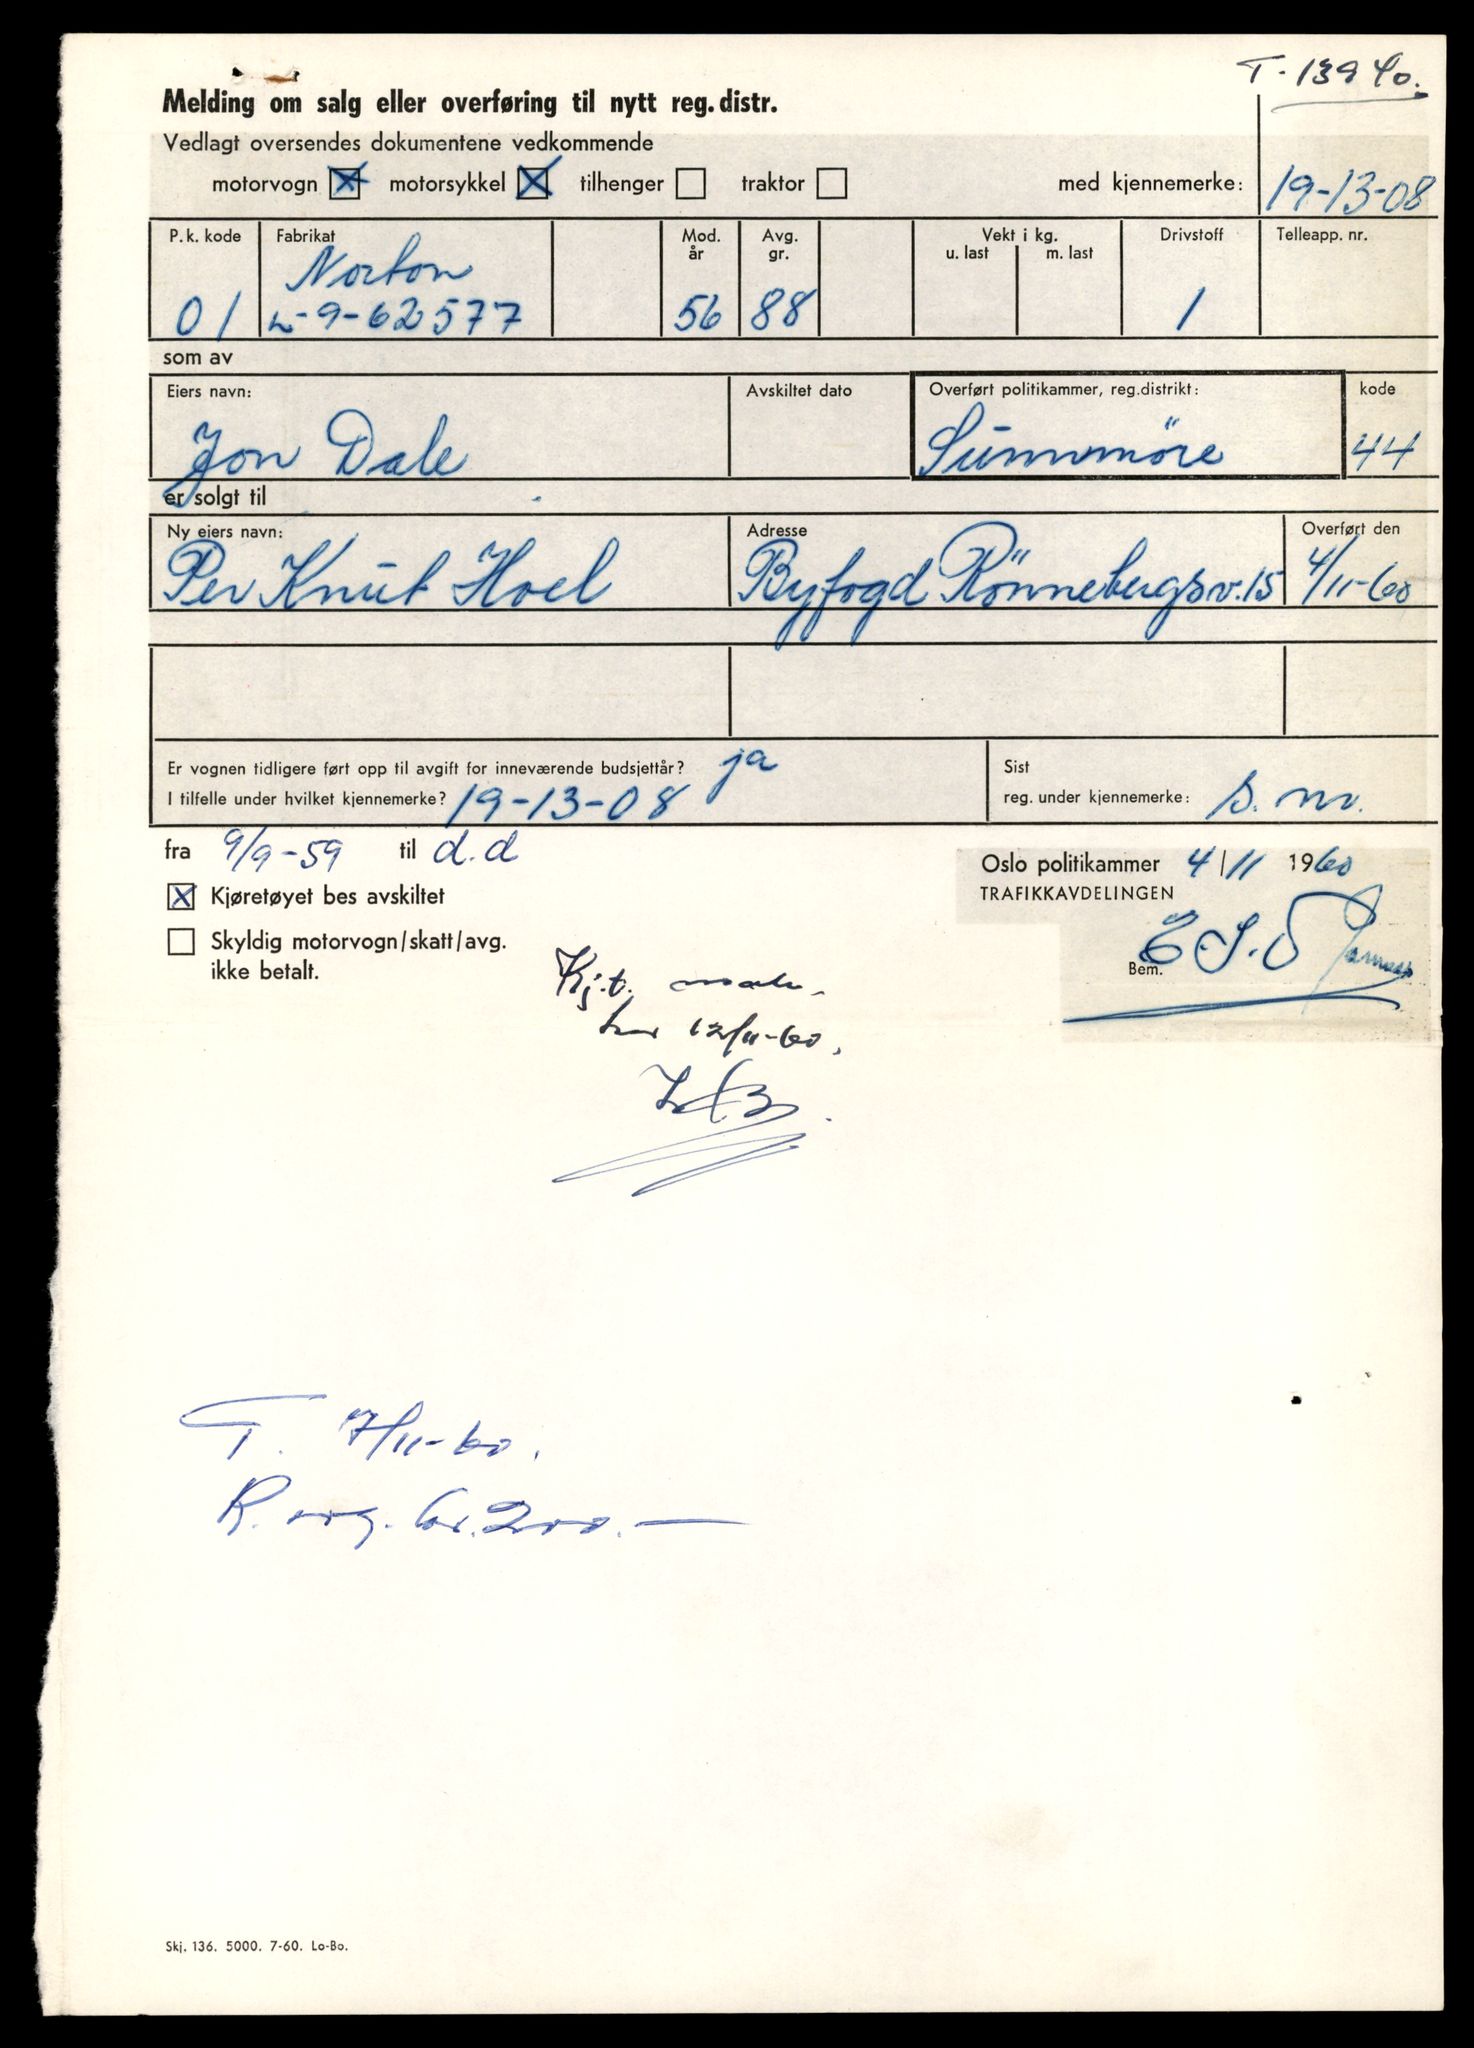 T-13940.
Melding om salg eller overføring til nytt reg. distr.
Vedlagt oversendes dokumentene vedkommende
motorvogn motorsykkel tilhenger traktor med kjennemerke: 19-13-08
P. k. kode Fabrikat Mod. år Avg. gr. Vekt i kg. u. last m. last Drivstoff Telleapp. nr.
Norton
01 L-9-62577 56 88 1
som av
Eiers navn: Avskiltet dato Overført politikammer, reg.distrikt: kode
Jon Dale Sunnmöre 44
er solgt til
Ny eiers navn: Adresse Overført den
Per Knut Hoel Byfogd Rönnebergsv. 15 4/11-60
Er vognen tidligere ført opp til avgift for inneværende budsjettår? ja
I tilfelle under hvilket kjennemerke? 19-13-08
Sist
reg. under kjennemerke: s. nr.
fra 9/9-59 til d.d
Oslo politikammer 4/11 1960
TRAFIKKAVDELINGEN
Kjøretøyet bes avskiltet
Skyldig motorvogn/skatt/avg.
ikke betalt.
Bem.
Kj.t.
12/11-60.
T. 7/11-60.
R. kr. 200.—
Skj. 136. 5000. 7-60. Lo-Bo.